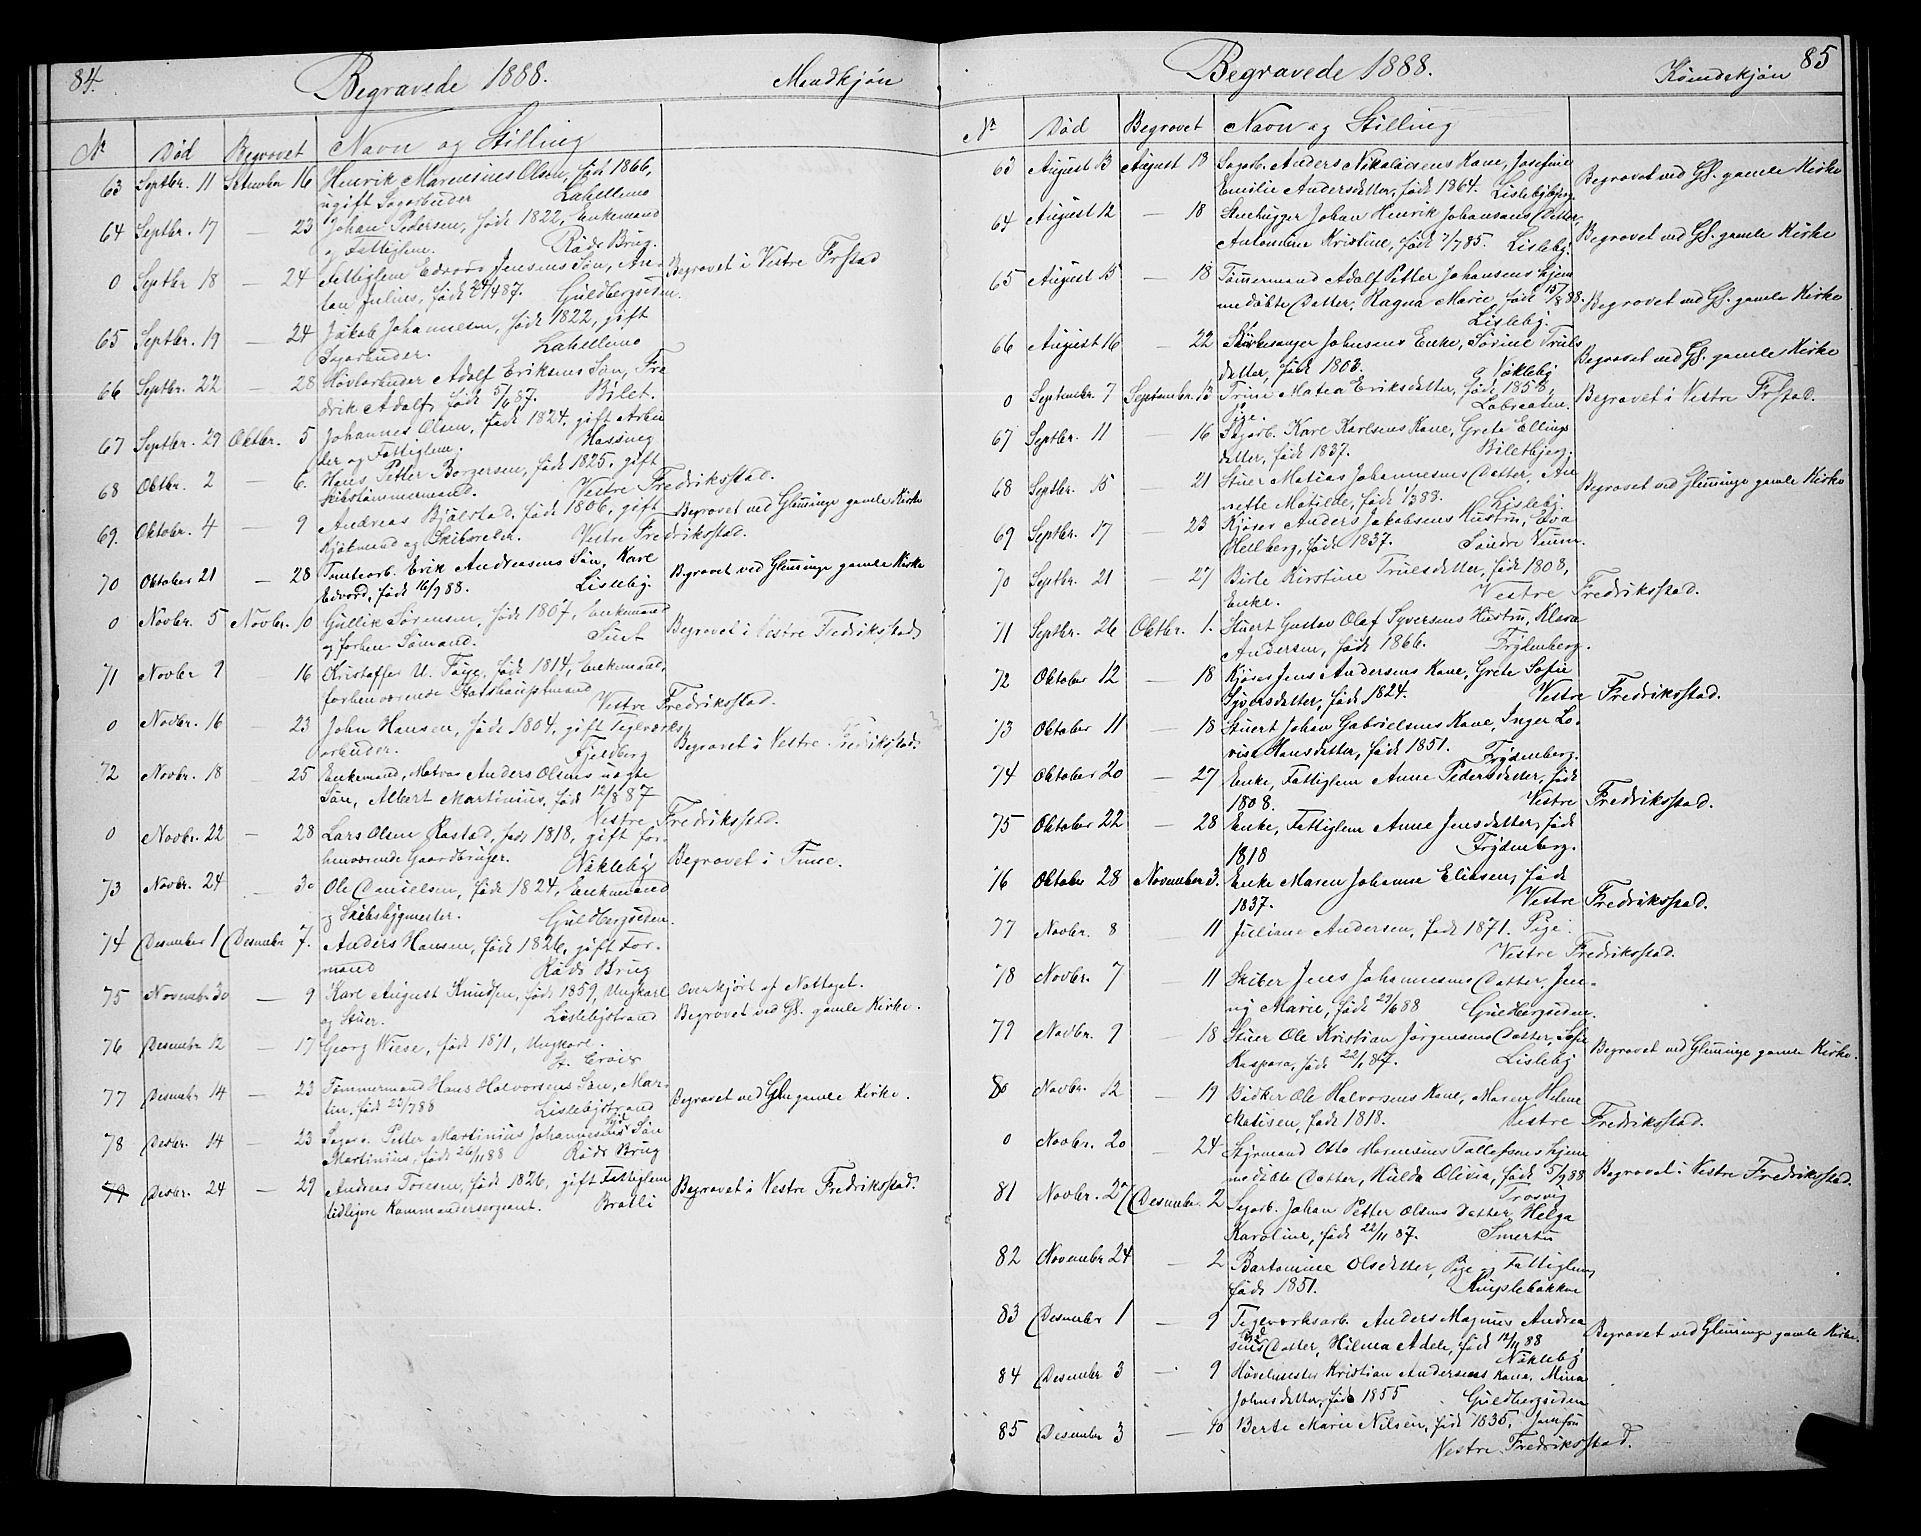 84.
Begravede 1888.
Mandkjøn
No Død Begravet Navn og Stilling
63 Septbr. 11 September 16 Henrik Marensius Olsen, født 1866,
ugift Sagarbuder Lahellemo
64 Septbr. 17 — 23 Johan Pedersen, født 1822, Enkemand
og Fattiglem. Råds Brug.
0 Septbr 18 — 24 Fattiglem Edvard Jensens Søn, An-
ton Julius, født 24/4 87. Guldbergsiden. Begravet i Vestre Frstad
65 Septbr. 19 — 24 Jakob Johannesen, født 1822, gift
Sagarbuder. Lahellemo
66 Septbr. 22 — 28 Høvlarbuder Adolf Eriksens Søn, Fre
drik Adolf, født 5/6 87. Bilet.
67 Septbr. 29 Oktbr. 5 Johannes Olsen, født 1824, gift Arbei
der og Fattiglem. Hassing
68 Oktbr. 2 — 6. Hans Petter Borgersen, født 1825, gift
Skibstømmermand. Vestre Fredriksstad.
69. Oktobr. 4 — 9 Andreas Bjølstad, født 1806, gift
Kjøbmand og Skibsreder. Vestre Fredriksstad. Begravet ved Glemminge gamle Kirke
70 Oktober 21 — 28 Tomtearb. Erik Andreasens Søn, Karl
Edvard, født 16/9 88. Lisleby. Begravet ved Glemminge gamle Kirke
0 Novbr. 5 Novbr. 10 Gullik Sørensen, født 1807, Enkemand
og forhen Sømand. Begravet i Vestre Fredriksstad
71 Novbr 9 16 Kristoffer U. Faye, født 1814, Enkemand,
forhenværende Statshauptmand Vestre Fredriksstad.
0 Novbr. 16 — 23 John Hansen, født 1804, gift Teglværks
arbuder. Fjeldberg Begravet i Vestre Fredriksstad.
72 Novbr. 18 — 25 Enkemand, Matros Anders Olsens uægte
Søn, Albert Martinius, født 12/8 87 Vestre Fredriksstad.
0 Novbr. 22 — 28 Lars Olsen Rastad, født 1818, gift for-
henværende Gaardbruger. Nøkleby Begravet i Tune.
73 Novbr. 24 — 30 Ole Danielsen, født 1824, Enkemand
og Skibsbygmester. Guldbergsiden.
74 Desember 1 Desember 7. Anders Hansen, født 1826, gift For-
mand Råds Brug
75 November 30 — 9 Karl August Knudsen, født 1859, Ungkarl Overkjørt af Nattoget.
og Stuer. Lislebystrand Begravet ved Gl. gamle Kirke.
76 Desember 12 — 17 Georg Wiese, født 1871, Ungkarl.
St. Croix
77 Desember 14 — 23 Tømmermand Hans Halvorsens Søn, Mar-
tin, født 23/7 88 Lislebystrand Begravet ved Glm gamle Kirke.
78 Desbr. 14 — 23 Sagarb. Petter Martinius Johannesens Søn
Martinius, født 26/11 88 Råds Brug
79 Desbr. 24 — 29 Andreas Toresen, født 1826, gift Fattiglem
tidligere Kommandersergeant. Bratli Begravet i Vestre Fredriksstad.
85
Begravede 1888.
Kvindekjøn
No Død Begravet Navn og Stilling
63 August 13 August 18 Sagarb. Anders Nikolaisens Kone, Josefine
Emilie Andersdatter, født 1864. Lislebybjerg Begravet ved Gl. gamle Kirke
64 August 12 — 18 Stenhugger Johan Henrik Johansens Datter,
Antomine Kristine, født 7/7 85. Lisleby. Begravet ved Gl. gamle Kirke
65 August 15 — 18 Tømmermand Adolf Petter Johansens hjem
medøbte Datter, Ragna Marie, født 15/8 88. Begravet ved Gl. gamle Kirke
Lisleby.
66 August 16 — 22 Kirkesanger Johnsens Enke, Sørine Truls
datter, født 1803. Nøkleby Begravet ved Gl. gamle Kirke
0 September 7 September 13 Trine Matea Eriksdatter, født 1858,
Pige. Labraaten. Begravet i Vestre Frstad.
67 Septbr. 11 — 16 Sagarb. Karl Karlsens Kone, Grete Ellings
datter, født 1837. Biletbjerg.
68 Septbr. 15 — 21 Stuer Matias Johannesens Datter, An
nette Matilde, født 1/3 88. Lisleby. Begravet ved Glemminge gamle Kirke
69 Septbr. 17 — 23 Kjører Anders Jakobsens Hustru, Eva
Hellberg, født 1837. Søndre Vuum.
70 Septbr. 21 — 27 Birte Kirstine Trulsdatter, født 1808,
Enke. Vestre Fredriksstad.
71 Septbr. 26 Oktbr. 1. Stuert Gustav Olaf Syversens Hustru, Klara
Andersen, født 1866. Frydenberg.
72 Oktober 12 — 18 Kjører Jens Andersens Kone, Grete Sofie
Syversdatter, født 1824. Vestre Fredriksstad.
73 Oktober 11 — 18 Stuert Johan Gabrielsens Kone, Inger Lo-
vise Hansdatter, født 1851. Frydenberg.
74 Oktober 20 — 27 Enke, Fattiglem Anne Pedersdatter, født
1808. Vestre Fredriksstad.
75 Oktober 22 — 28 Enke, Fattiglem Anne Jensdatter, født
1818 Frydenberg.
76 Oktober 28 November 3. Enke Maren Johanne Eliesen, født
1837. Vestre Fredriksstad.
77 Novbr. 8 — 11 Juliane Andersen, født 1871. Pige.
Vestre Fredriksstad.
78 Novbr. 7 — 11 Skiber Jens Johannesens Datter, Jen-
ny Marie, født 29/6 88 Guldbergsiden.
79 Novbr. 9 — 18 Stuer Ole Kristian Jørgensens Datter, Sofie
Kaspara, født 22/1 87. Lisleby Begravet ved Glemminge gamle Kirke.
80 Novbr. 12 — 19 Bødker Ole Halvorsens Kone, Maren Helene
Matisen, født 1818. Vestre Fredriksstad.
0 Novbr. 20 — 24 Styrmand Otto Marensius Tallefsens hjem
medøbte Datter, Hulda Olivia, født 5/9 88 Begravet i Vestre Fredriksstad.
Trosvig
81 Novbr. 27 Desember 2 Sagarb. Johan Petter Olsens Datter Helga
Karoline, født 22/11 87. Smertu
82 November 24 — 2 Bartomine Olsdatter, Pige og Fattiglem,
født 1851.
83 Desember 1 — 9 Teglværksarb. Anders Magnus Andrea
sens Datter, Hilma Adele, født 12/11 88 Begravet ved Glemminge gamle Kirke.
Nøkleby
84 Desember 3 — 9 Høvelmester Kristian Andersens Kone, Mina
Johnsdatter, født 1855 Guldbergsiden
85 Desember 3 — 10 Berte Marie Nilsen, født 1835. Jomfru
Vestre Fredriksstad.